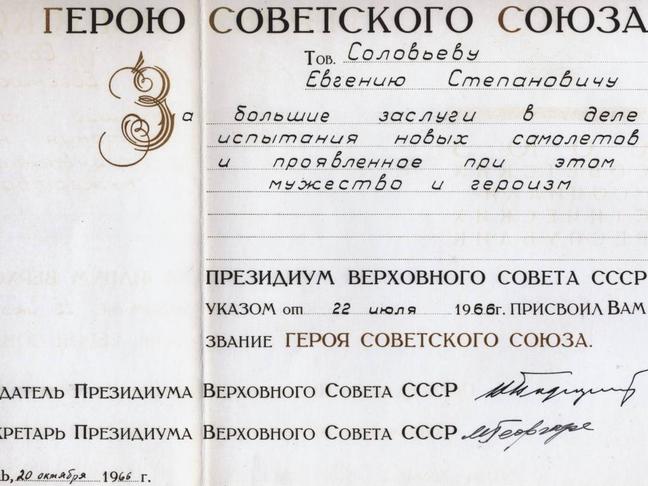 ГЕРОЮ СОВЕТСКОГО СОЮЗА
Тов. Соловьеву
Евгению Степановичу
За большие заслуги в деле
испытания новых самолетов
и проявленное при этом
мужество и героизм
ПРЕЗИДИУМ ВЕРХОВНОГО СОВЕТА СССР
УКАЗОМ от 22 июля 1966 г. ПРИСВОИЛ ВАМ
ЗВАНИЕ ГЕРОЯ СОВЕТСКОГО СОЮЗА.
ДАТЕЛЬ ПРЕЗИДИУМА ВЕРХОВНОГО СОВЕТА СССР
КРЕТАРЬ ПРЕЗИДИУМА ВЕРХОВНОГО СОВЕТА СССР МГеоргадзе
20 октября 1966 г.